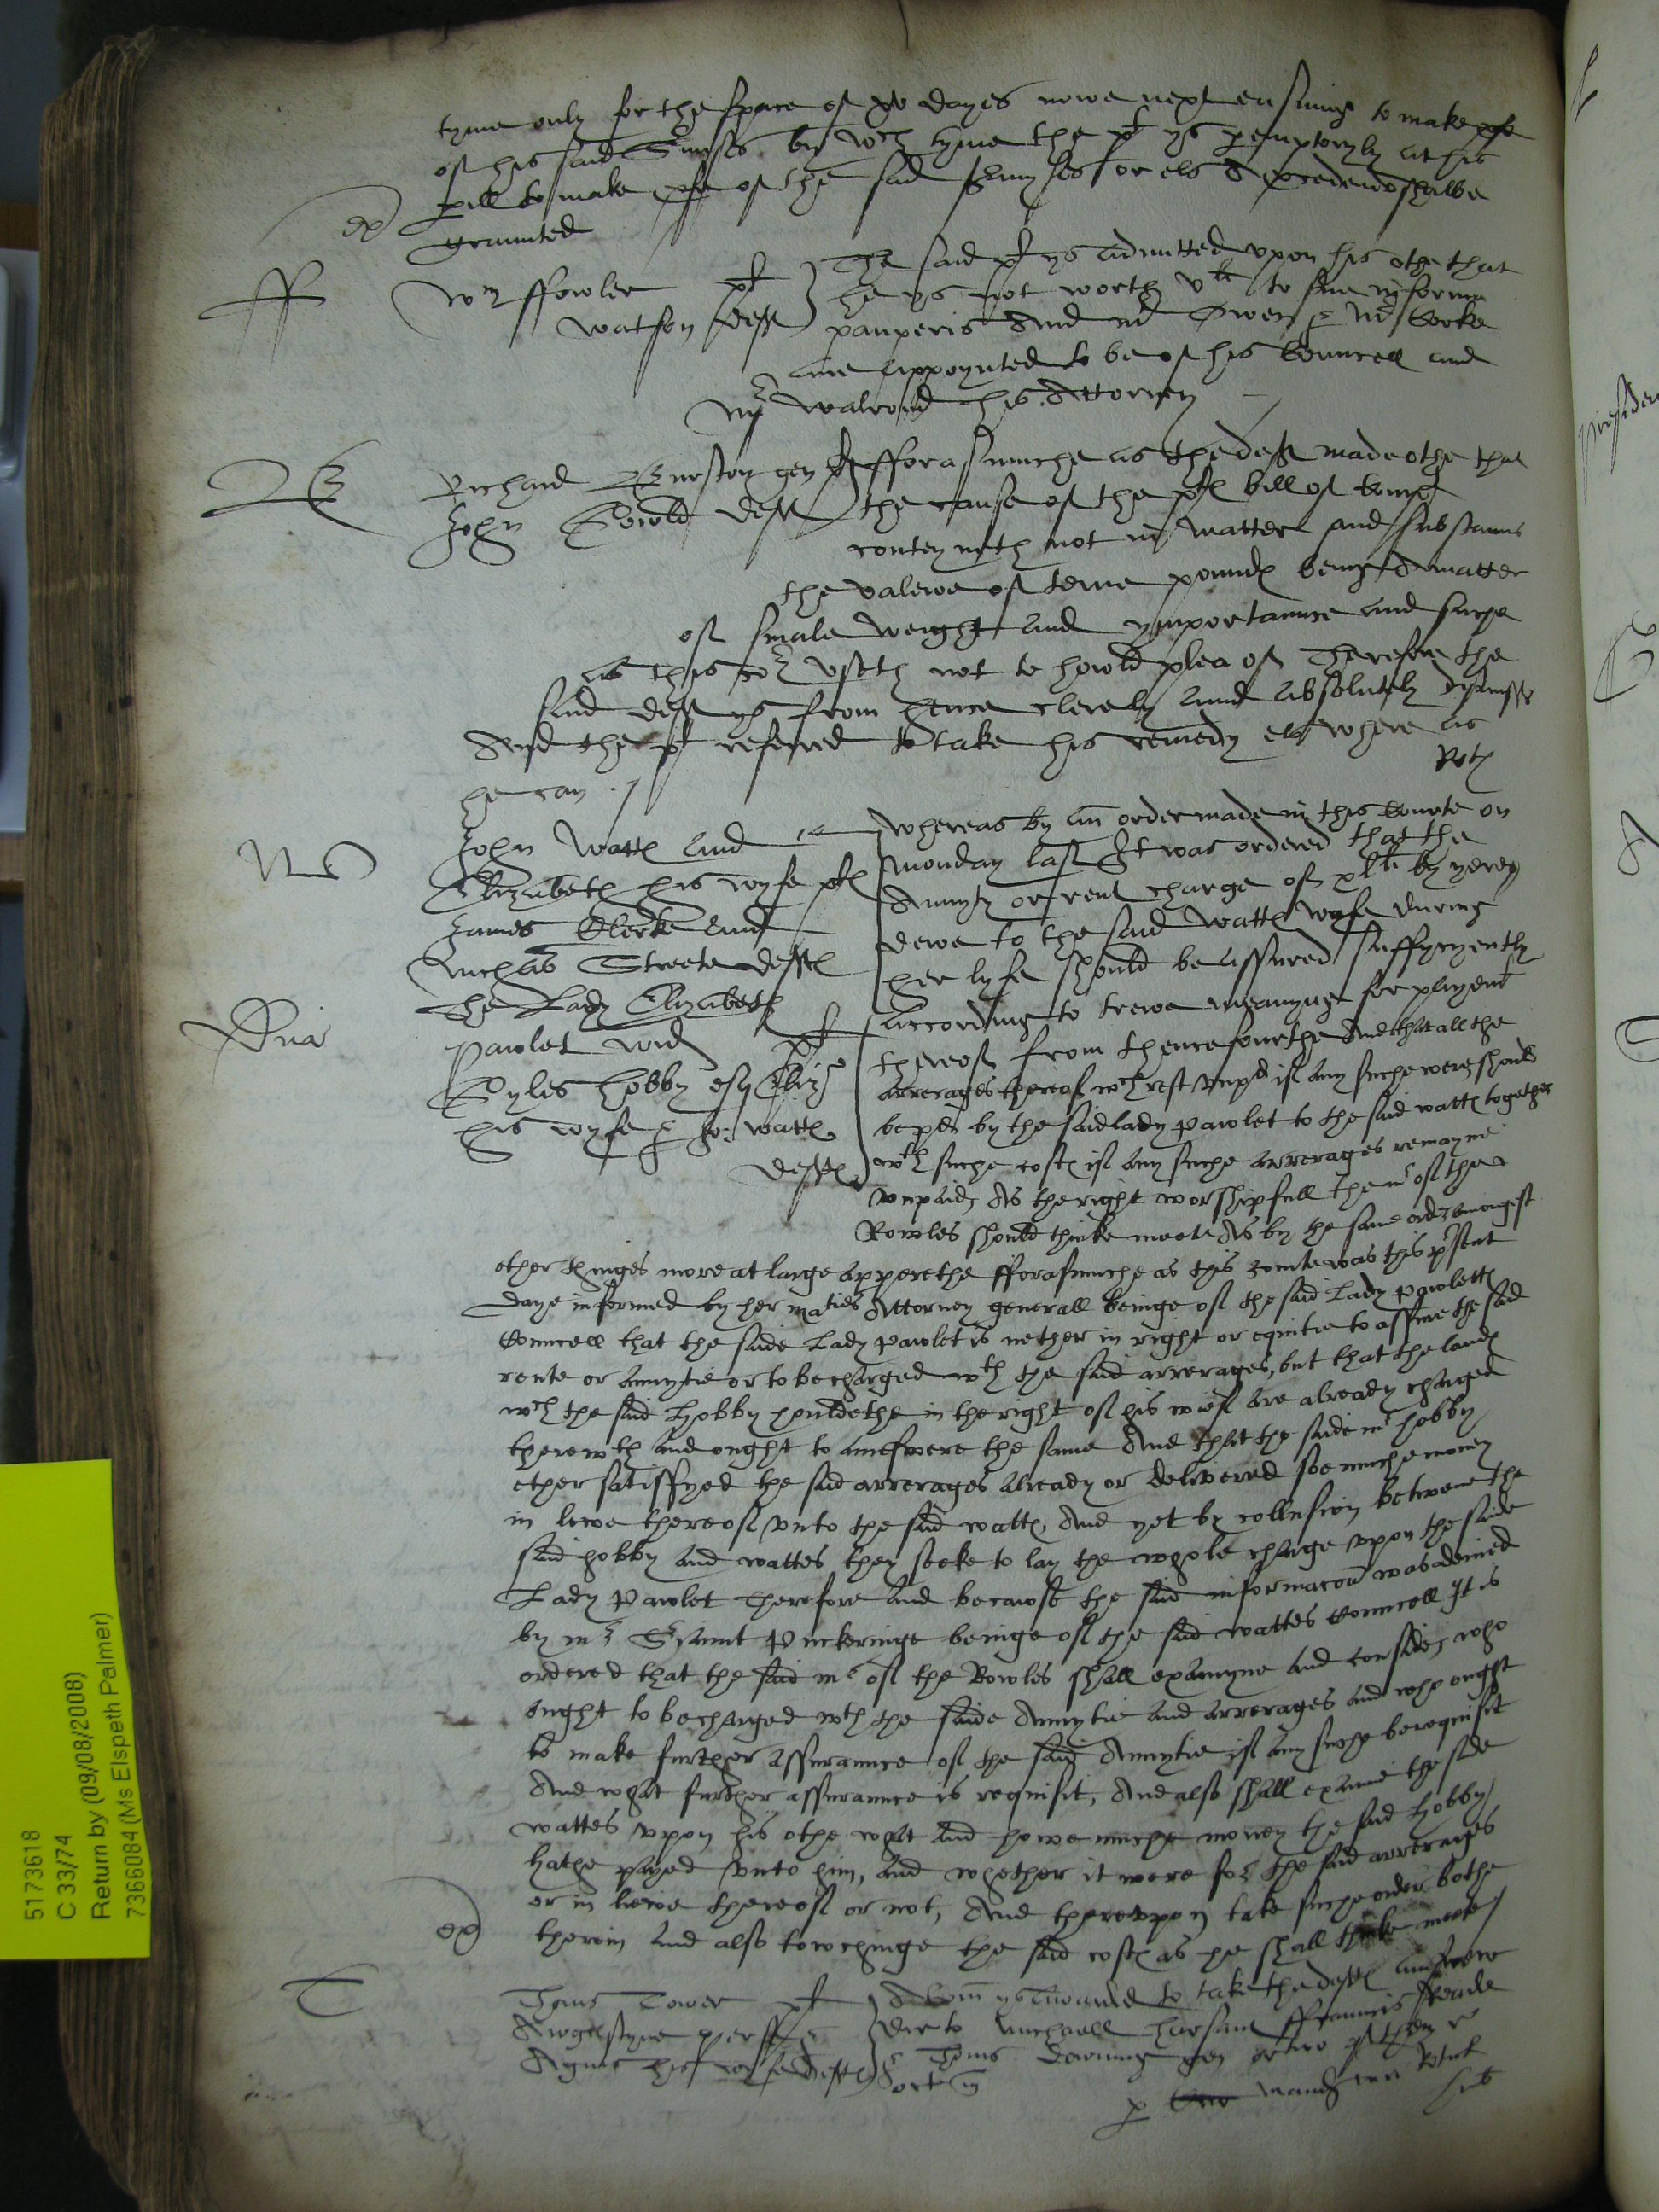 tyme only for the space of xv dayes nowe next ensuing to make pfe
of his said by wch tyme the pl ys peremptoryly at his
pell to make pfe of the said or els A procedendo shalbe
graunted
ex
ff
Wm ffowler pl
Watson deft
The said pl ys admitted upon his othe that
he ys not worth vli to sue in forma
pauperis And mr Owen & mr Corke
are appoynted to be of his Councell and
mr Walrond his Attorney
Richard Burston gen pl
John Gowld deft
fforasmuche as the deft made othe that
the cause of the pltes bill of Complt
conteyneth not in matter and substaunce
the valewe of tenne poundes being A matter
of smale weight and ymportaunce and suche
as this Cort useth not to howld plea of Therefore the
said deft ys from hence clerely and absolutely dysmissed
And the pl referred to take his remedy els where as
he can
John Wattes and
Elizabeth his wyfe pltes
James Clerke and
Nichas Streete deftes
The Lady Elizabeth
Pawlet wid pl
Gyles Hobby esq Eliz
his wyfe & Jo: Wattes
deftes
Whereas by an order made in this Courte on
monday last It was ordered that the
Annuyty or rent charge of xlli by yere
dewe to the said Wattes wyfe during
her lyfe should be assured suffycyently
According to trewe meanynge for payemt
thereof from thencefourthe And that all the
arrerages thereof wch rest unpd if any suche were should
be pd by the said lady Pawlet to the said Wattes together
wth suche costes if any suche arrerages remayne
unpaid, As the right worshipfull the mr of the
Rowles should thinke meete As by the same order amongest
other thinges more at large apperethe fforasmuche as this Courte was this present
Daye informed by her maties Attorney generall beinge of the said Lady Pawlettes
Councell that the saide Lady Pawlet is nether in right or equitie to assure the said
rente or annuytie or to be charged wth the said arrerages, but that the landes
wch the said Hobby houldethe in the right of his wief are already charged
therewth and ought to aunswere the same And that the saide mr hobby
ether satisffyed the said arrerages already or delivered soe muche money
in liewe thereof unto the said Wattes, And yet by collusion betwene the
said hobby and wattes they seeke to lay the whole charge upon the saide
Lady Pawlet Therefore and because the said informacon was denied
by mr Sriaunt Puckeringe beinge of the said wattes Councell It is
ordered that the said mr of the Rowles shall examyne and consider, who
ought to be charged wth the saide Annuytie and arrerages and who ought
to make further assuraunce of the said Annuytie if any suche be requisit
And what further assuraunce is requisit, And also shall examine the saide
wattes upon his othe what and howe muche money the said hobby
hathe payed unto him, and whether it were for the said arrerages
or in liewe thereof or not, And thereupon take suche order bothe
therein and also towchinge the said costes as he shall thinke meete
ex
Thoms Tower pl
Awgustyne &
Agnes his wyfe deftes
A Com ys awarded to take the deftes aunswere
dir to Michaell ffrauncis Reade
& Thoms Downing gen or two of them
5173618
C 33/74
Return by (09/08/2008)
7366084 (Ms Elspeth Palmer)